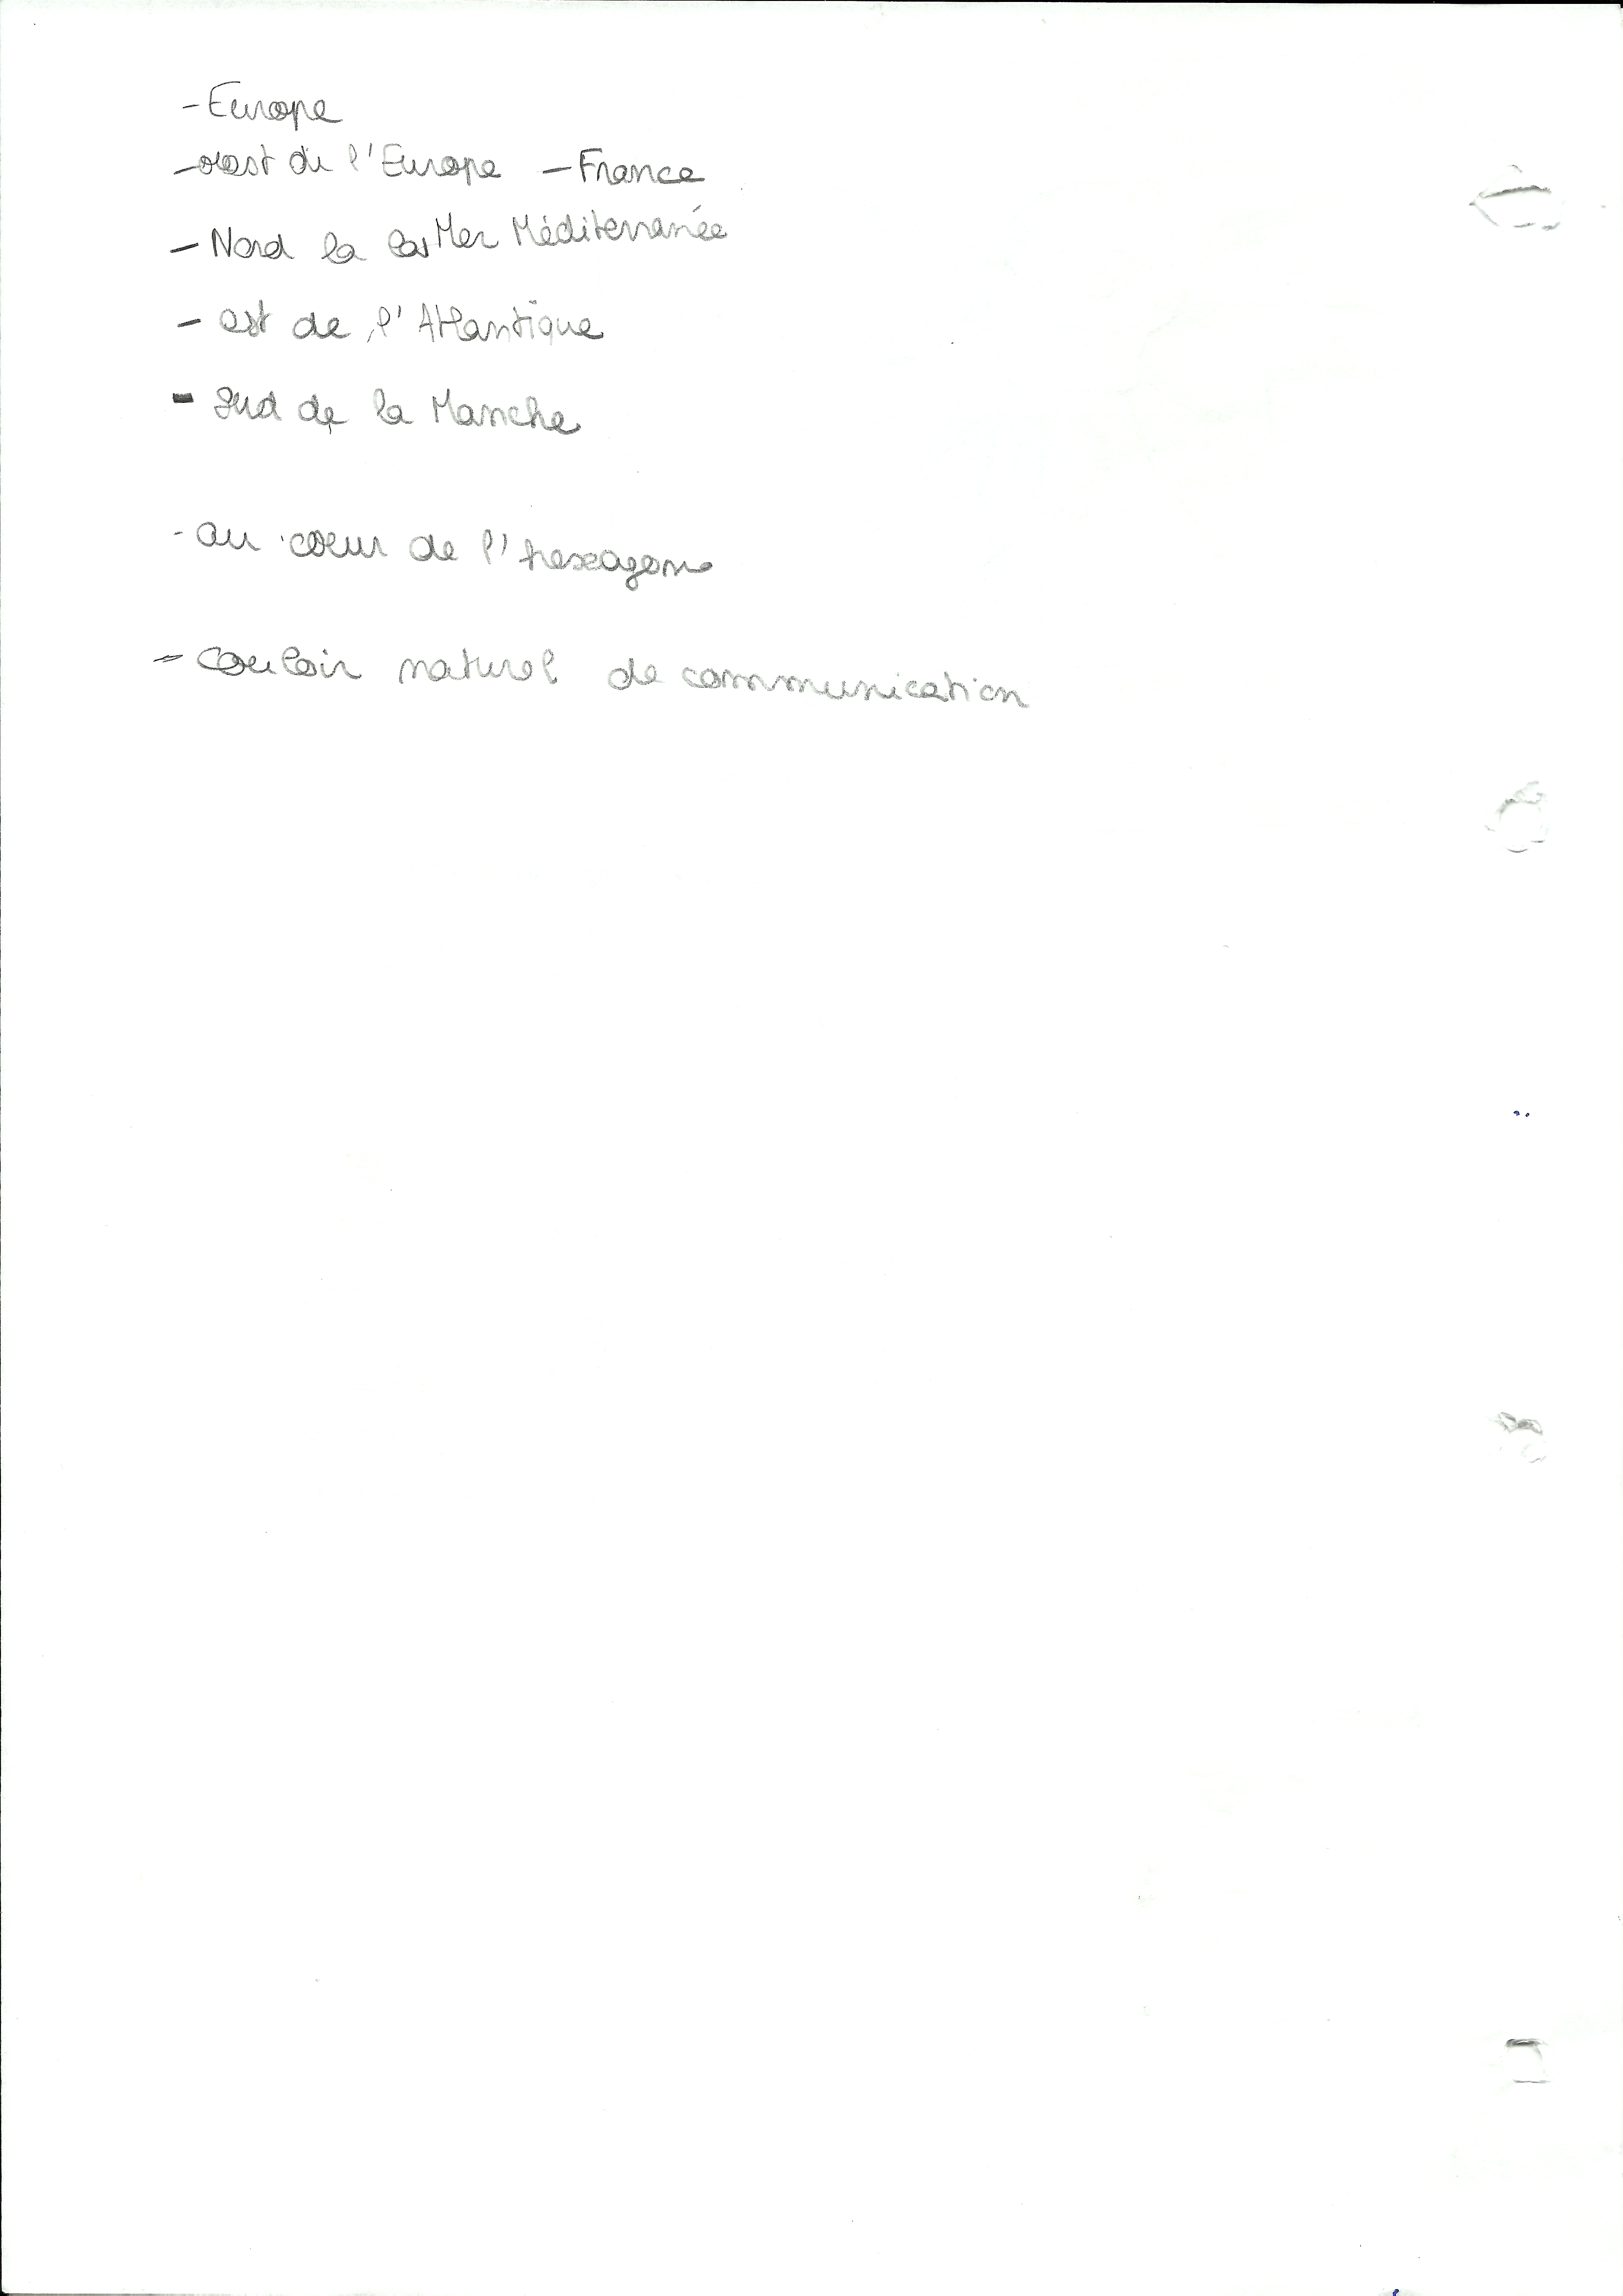 - Europe
- ouest de l'Europe - France
- Nord la la Mer Méditerranée
- est de l'Atlantique
- Sud de la Manche
- au coeur de l'hexagone
- couloir naturel de communication